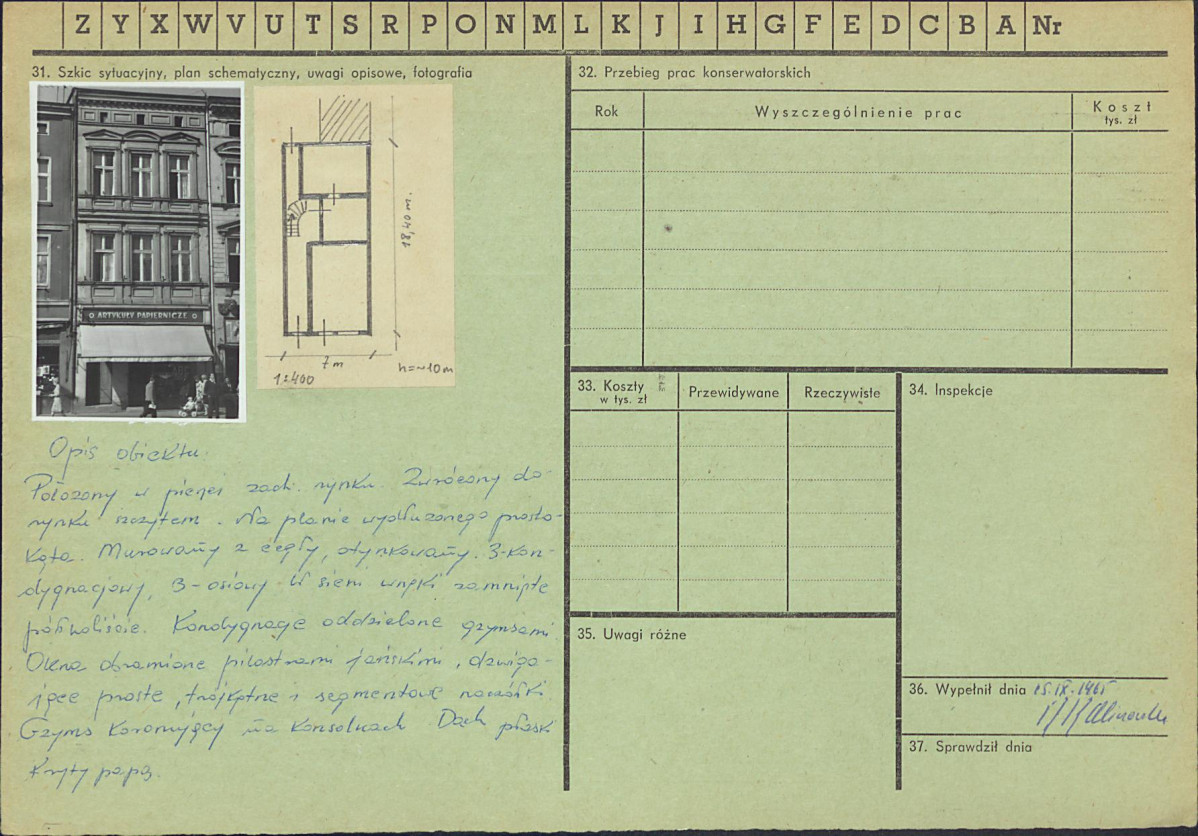 Z Y X W V U T S R P O N M L K J I H G F E D C B A Nr
31. Szkic sytuacyjny, plan schematyczny, uwagi opisowe, fotografia
ARTYKUŁY PAPIERNICZE
18,40 m.
7 m
1:400
h=~10m
Opis obiektu:
Położony w pierzei zach. rynku. Zwrócony do
rynku szczytem. Na planie wydłużonego prosto-
kąta. Murowany z cegły, otynkowany. 3-kon-
dygnacjowy, 3-osiowy. W sieni wnęki zamknięte
półkoliście. Kondygnacje oddzielone gzymsami.
Okna obramione pilastrami jońskimi, dźwiga-
jące proste, trójkątne i segmentowe naczółki.
Gzyms koronujący na konsolkach Dach płaski
kryty papą.
32. Przebieg prac konserwatorskich
Rok
Wyszczególnienie prac
Koszt
tys. zł
33. Koszty
w tys. zł
Przewidywane
Rzeczywiste
34. Inspekcje
35. Uwagi różne
36. Wypełnił dnia 15.IX.1965
37. Sprawdził dnia